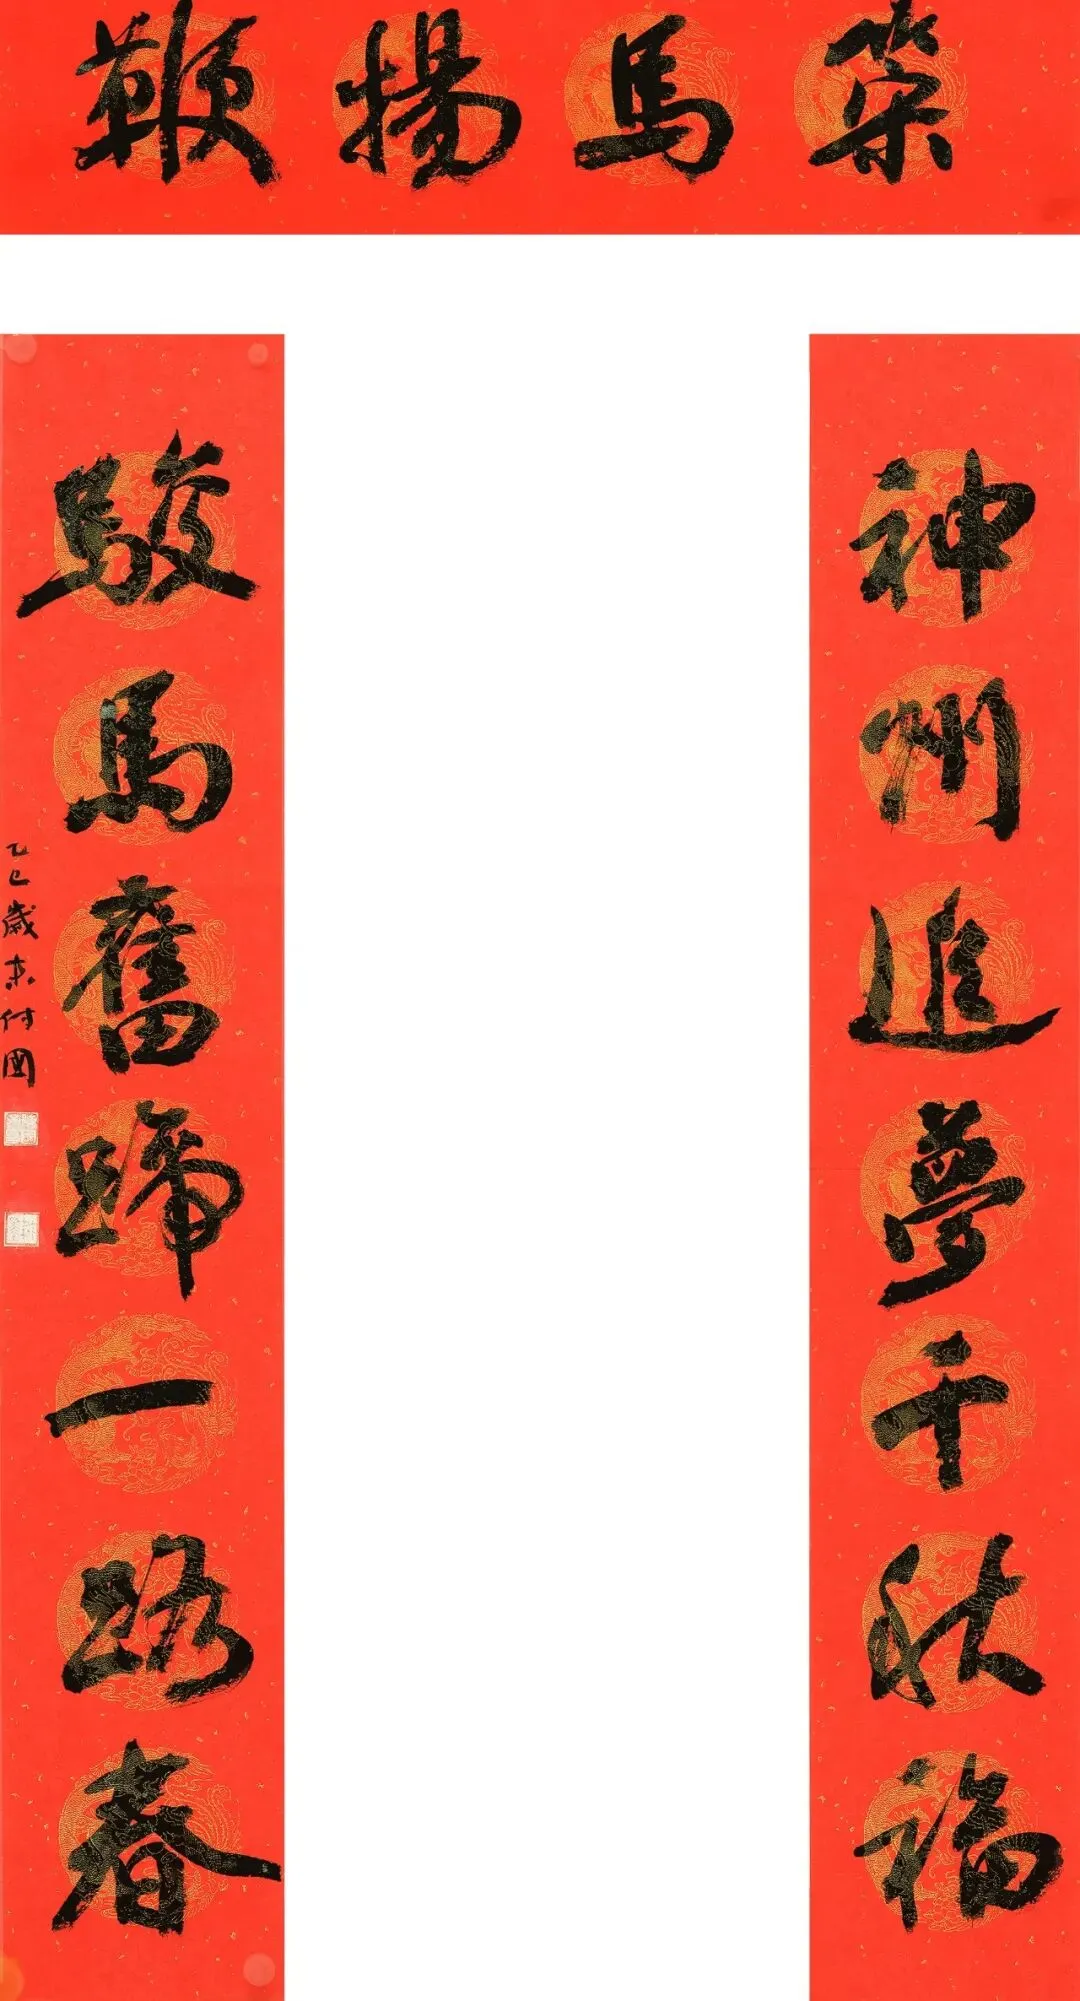 策馬揚鞭
神州追夢千秋福
駿馬奮蹄一路春
乙巳歲末付國